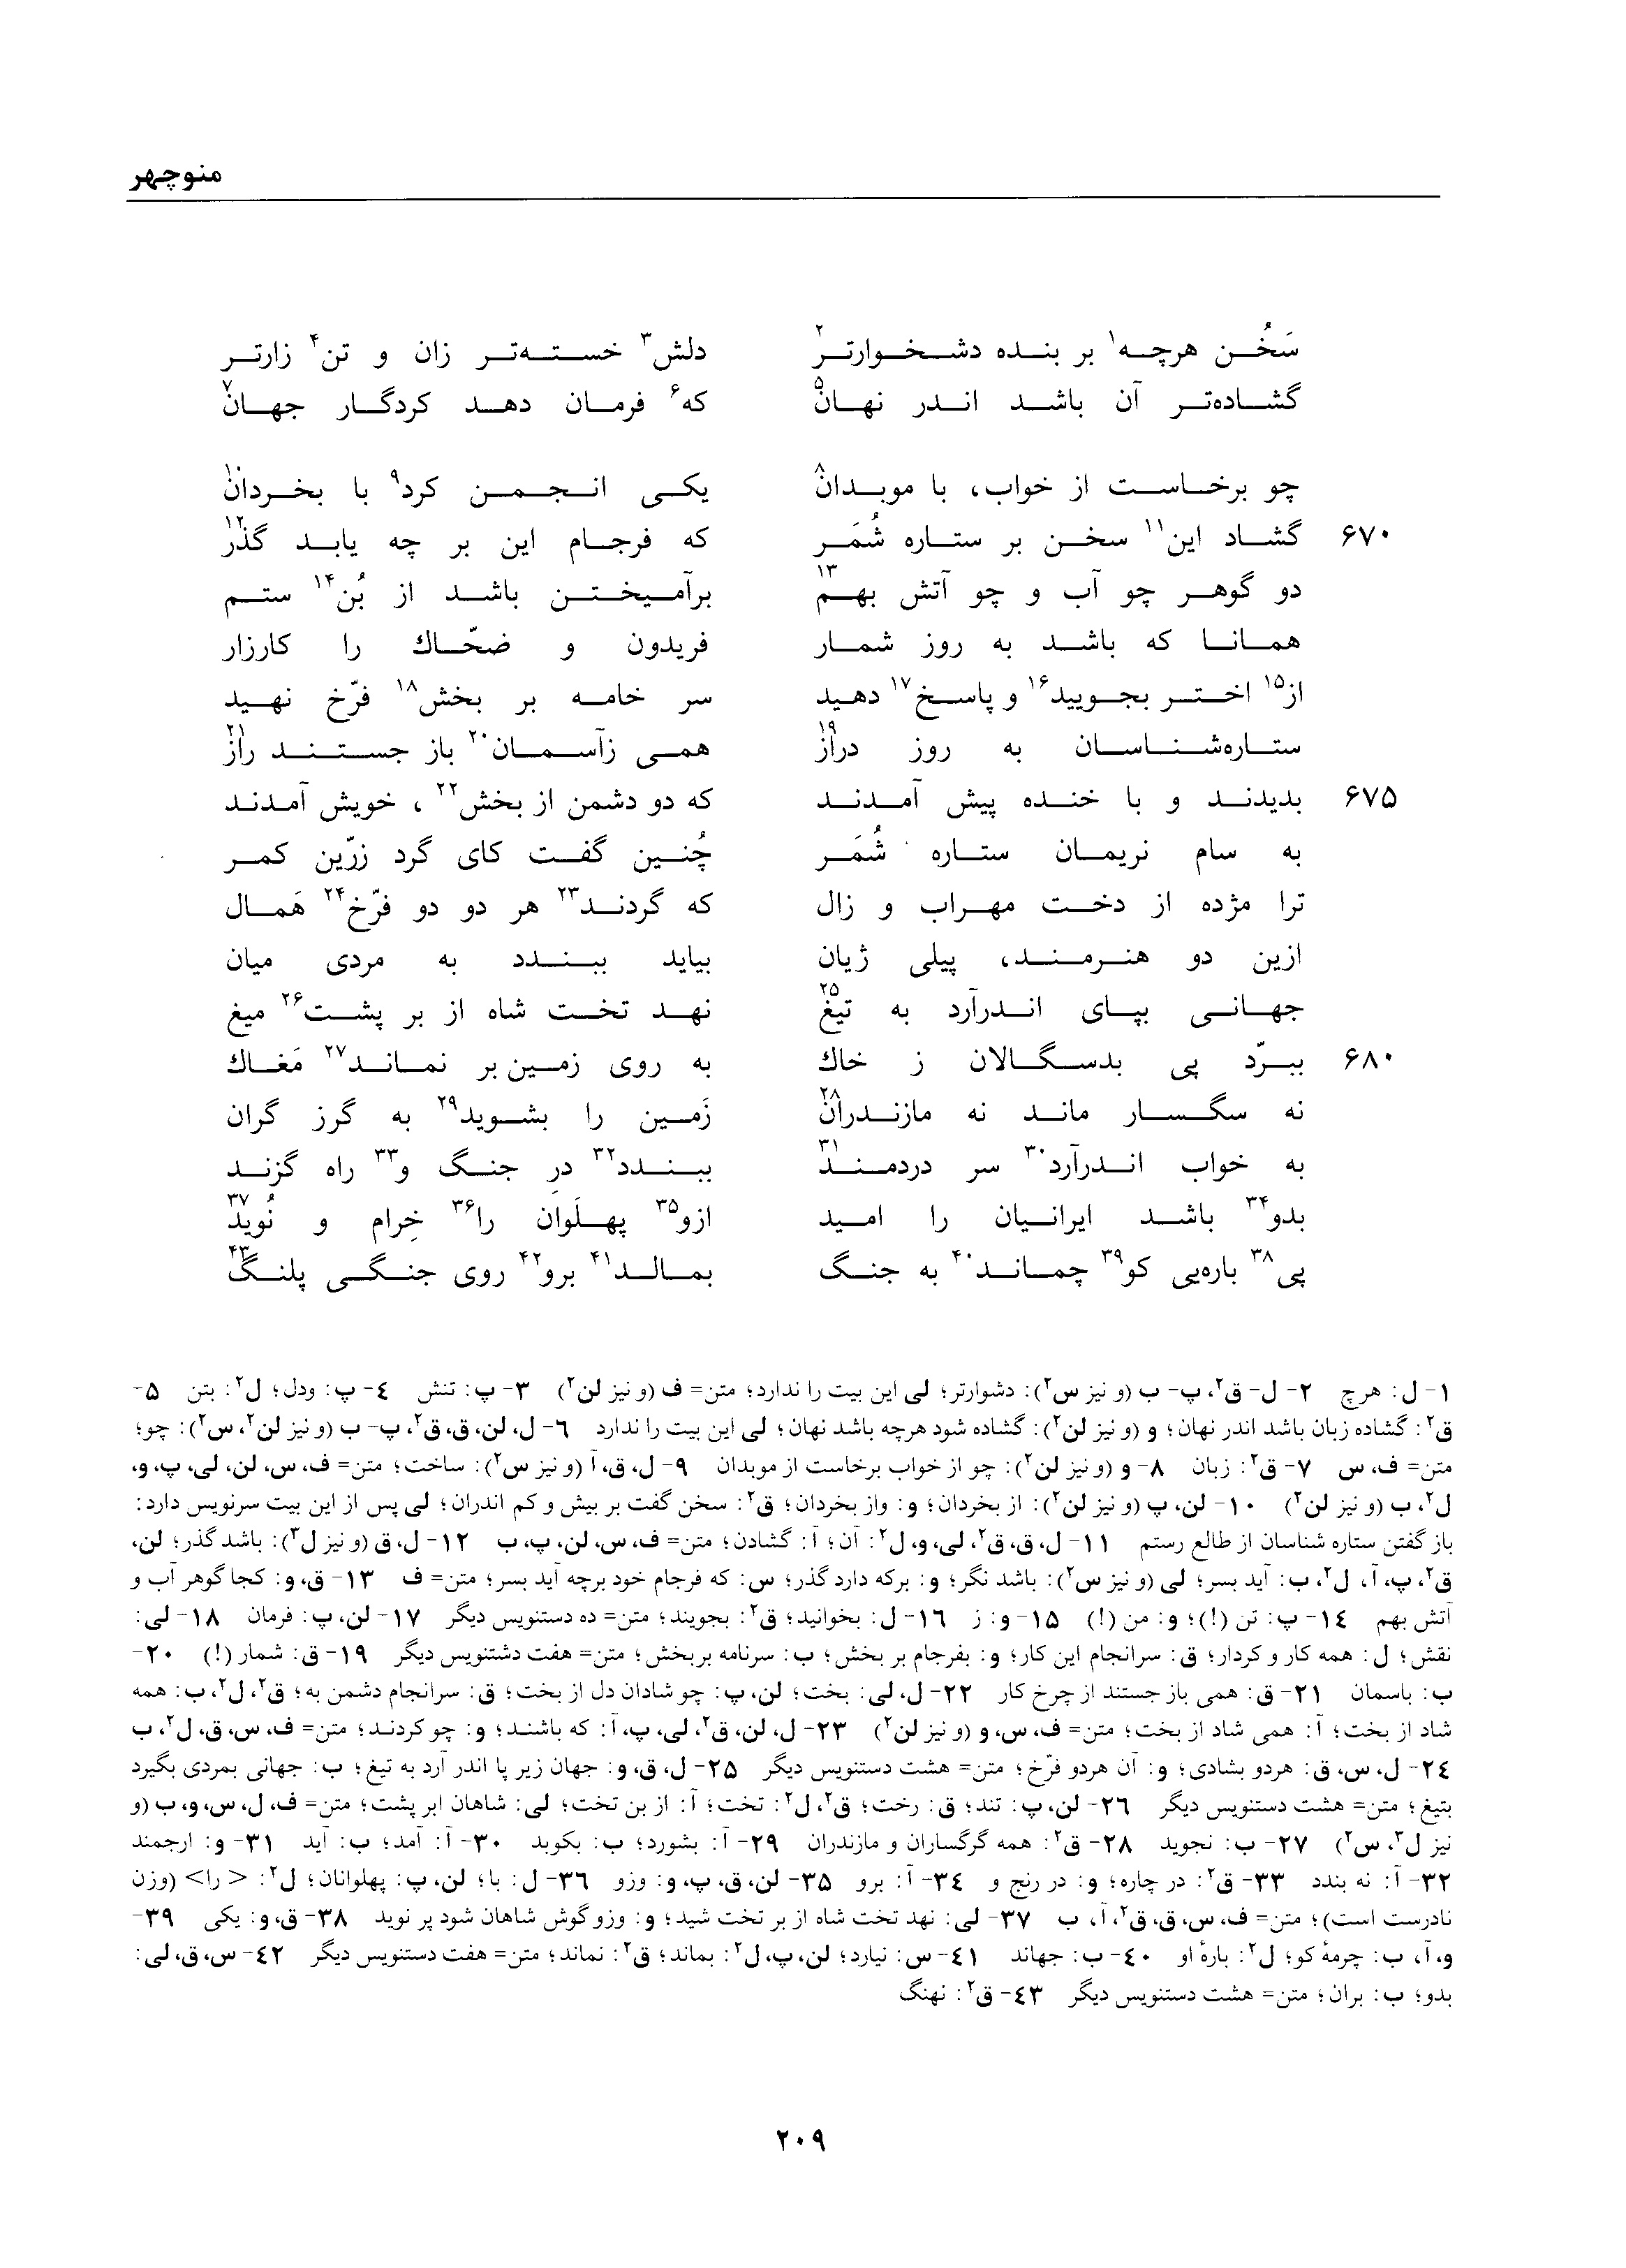 منوچهر
سَخُن هرچه۱ بر بنده دشخوارتر۲ دلش۳ خسته‌تر زان و تن۴ زارتر
گشاده‌تر آن باشد اندر نهان۵ که۶ فرمان دهد کردگار جهان۷
چو برخاست از خواب، با موبدان۸ یکی انجمن کرد۹ با بخردان۱۰
۶۷۰ گشاد این۱۱ سخن بر ستاره شُمَر که فرجام این بر چه یابد گذر۱۲
دو گوهر چو آب و چو آتش بهم۱۳ برآمیختن باشد از بُن۱۴ ستم
همانا که باشد به روز شمار فریدون و ضحّاك را کارزار
از۱۵ اختر بجویید۱۶ و پاسخ۱۷ دهید سر خامه بر بخش۱۸ فرّخ نهید
ستاره‌شناسان به روز دراز۱۹ همی زآسمان۲۰ باز جستند راز۲۱
۶۷۵ بدیدند و با خنده پیش آمدند که دو دشمن از بخش۲۲، خویش آمدند
به سام نریمان ستاره شُمَر چُنین گفت کای گرد زرّین کمر
ترا مژده از دخت مهراب و زال که گردند۲۳ هر دو دو فرّخ۲۴ هَمال
ازین دو هنرمند، پیلی ژیان بیاید ببندد به مردی میان
جهانی بپای اندرآرد به تیغ۲۵ نهد تخت شاه از بر پشت۲۶ میغ
۶۸۰ ببرّد پی بدسگالان ز خاك به روی زمین بر نماند۲۷ مَغاك
نه سگسار ماند نه مازندران۲۸ زَمین را بشوید۲۹ به گرز گران
به خواب اندرآرد۳۰ سر دردمند۳۱ ببندد۳۲ درِ جنگ و۳۳ راه گزند
بدو۳۴ باشد ایرانیان را امید ازو۳۵ پهلَوان را۳۶ خِرام و نُوید۳۷
پی۳۸ باره‌یی کو۳۹ چماند۴۰ به جنگ بمالد۴۱ برو۴۲ روی جنگی پلنگ۴۳
۱- ل: هرچ ۲- ل- ق۲، پ- ب (و نیز س۲): دشوارتر؛ لی این بیت را ندارد؛ متن= ف (و نیز لن۲) ۳- پ: تنش ٤- پ: ودل؛ ل۲: بتن ۵-
ق۲: گشاده زبان باشد اندر نهان؛ و (و نیز لن۲): گشاده شود هرچه باشد نهان؛ لی این بیت را ندارد ٦- ل، لن، ق، ق۲، پ- ب (و نیز لن۲، س۲): چو؛
متن= ف، س ۷- ق۲: زبان ۸- و (و نیز لن۲): چو از خواب برخاست از موبدان ۹- ل، ق، آ (و نیز س۲): ساخت؛ متن= ف، س، لن، لی، پ، و،
ل۲، ب (و نیز لن۲) ۱۰- لن، پ (و نیز لن۲): از بخردان؛ و: واز بخردان؛ ق۲: سخن گفت بر بیش و کم اندران؛ لی پس از این بیت سرنویس دارد:
باز گفتن ستاره شناسان از طالع رستم ۱۱- ل، ق، ق۲، لی، و، ل۲: آن؛ آ: گشادن؛ متن= ف، س، لن، پ، ب ۱۲- ل، ق (و نیز ل۳): باشد گذر؛ لن،
ق۲، پ، آ، ل۲، ب: آید بسر؛ لی (و نیز س۲): باشد نگر؛ و: برکه دارد گذر؛ س: که فرجام خود برچه آید بسر؛ متن= ف ۱۳- ق، و: کجا گوهر آب و
آتش بهم ۱٤- پ: تن (!)؛ و: من (!) ۱۵- و: ز ۱٦- ل: بخوانید؛ ق۲: بجویند؛ متن= ده دستنویس دیگر ۱۷- لن، پ: فرمان ۱۸- لی:
نقش؛ ل: همه کار و کردار؛ ق: سرانجام این کار؛ و: بفرجام بر بخش؛ ب: سرنامه بربخش؛ متن= هفت دشتنویس دیگر ۱۹- ق: شمار (!) ۲۰-
ب: باسمان ۲۱- ق: همی باز جستند از چرخ کار ۲۲- ل، لی: بخت؛ لن، پ: چو شادان دل از بخت؛ ق: سرانجام دشمن به؛ ق۲، ل۲، ب: همه
شاد از بخت؛ آ: همی شاد از بخت؛ متن= ف، س، و (و نیز لن۲) ۲۳- ل، لن، ق۲، لی، پ، آ: که باشند؛ و: چو کردند؛ متن= ف، س، ق، ل۲، ب
۲٤- ل، س، ق: هردو بشادی؛ و: آن هردو فرّخ؛ متن= هشت دستنویس دیگر ۲۵- ل، ق، و: جهان زیر پا اندر آرد به تیغ؛ ب: جهانی بمردی بگیرد
بتیغ؛ متن= هشت دستنویس دیگر ۲٦- لن، پ: تند؛ ق: رخت؛ ق۲، ل۲: تخت؛ آ: از بن تخت؛ لی: شاهان ابر پشت؛ متن= ف، ل، س، و، ب (و
نیز ل۳، س۲) ۲۷- ب: نجوید ۲۸- ق۲: همه گرگساران و مازندران ۲۹- آ: بشورد؛ ب: بکوبد ۳۰- آ: آمد؛ ب: آید ۳۱- و: ارجمند
۳۲- آ: نه بندد ۳۳- ق۲: در چاره؛ و: در رنج و ۳٤- آ: برو ۳۵- لن، ق، پ، و: وزو ۳٦- ل: با؛ لن، پ: پهلوانان؛ ل۲: <را> (وزن
نادرست است)؛ متن= ف، س، ق، ق۲، آ، ب ۳۷- لی: نهد تخت شاه از بر تخت شید؛ و: وزو گوش شاهان شود پر نوید ۳۸- ق، و: یکی ۳۹-
و، آ، ب: چرمهٔ کو؛ ل۲: بارهٔ او ٤۰- ب: جهاند ٤۱- س: نیارد؛ لن، پ، ل۲: بماند؛ ق۲: نماند؛ متن= هفت دستنویس دیگر ٤۲- س، ق، لی:
بدو؛ ب: بران؛ متن= هشت دستنویس دیگر ٤۳- ق۲: نهنگ
۲۰۹